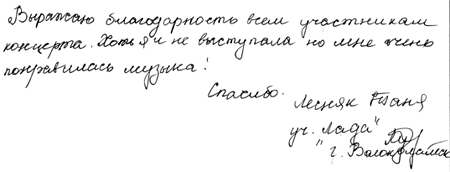 Выражаю благодарность всем участникам
концерта. Хоть я и не выступала но мне очень
понравилась музыка!
Спасибо.
Лесняк Таня
уч. "Лада"
г. Волоколамск